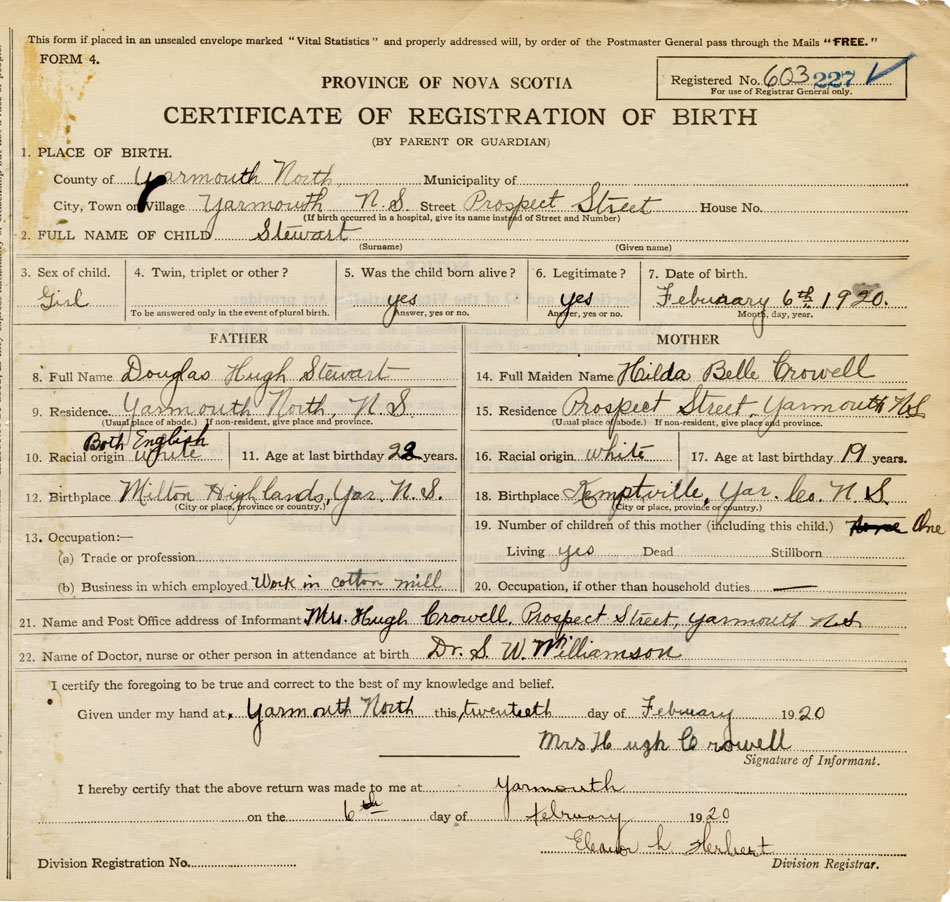 This form if placed in an unsealed envelope marked "Vital Statistics" and properly addressed will, by order of the Postmaster General pass through the Mails "FREE."
FORM 4.
Registered No. 603 227 ✓
For use of Registrar General only.
PROVINCE OF NOVA SCOTIA
CERTIFICATE OF REGISTRATION OF BIRTH
(BY PARENT OR GUARDIAN)
1. PLACE OF BIRTH.
County of Yarmouth North, Municipality of
City, Town or Village Yarmouth N.S. Street Prospect Street House No.
(If birth occurred in a hospital, give its name instead of Street and Number)
2. FULL NAME OF CHILD Stewart
(Surname) (Given name)
3. Sex of child. 4. Twin, triplet or other? 5. Was the child born alive? 6. Legitimate? 7. Date of birth.
Girl yes yes Febuary 6th 1920.
To be answered only in the event of plural birth. Answer, yes or no. Answer, yes or no. Month, day, year.
FATHER MOTHER
8. Full Name Douglas Hugh Stewart 14. Full Maiden Name Hilda Belle Crowell
9. Residence. Yarmouth North, N.S. 15. Residence Prospect Street, Yarmouth N.S
(Usual place of abode.) If non-resident, give place and province. (Usual place of abode.) If non-resident, give place and province.
Both English
10. Racial origin white 11. Age at last birthday 22 years. 16. Racial origin white 17. Age at last birthday 19 years.
12. Birthplace Milton Highlands, Yar. N.S. 18. Birthplace Kemptville, Yar. Co. N.S.
(City or place, province or country.) (City or place, province or country.)
13. Occupation:— 19. Number of children of this mother (including this child.) One
(a) Trade or profession Living yes Dead Stillborn
(b) Business in which employed Work in cotton mill 20. Occupation, if other than household duties —
21. Name and Post Office address of Informant Mrs. Hugh Crowell, Prospect Street, Yarmouth N.S
22. Name of Doctor, nurse or other person in attendance at birth Dr. S. W. Williamson
I certify the foregoing to be true and correct to the best of my knowledge and belief.
Given under my hand at Yarmouth North this twentieth day of February 1920
Mrs Hugh Crowell
Signature of Informant.
I hereby certify that the above return was made to me at Yarmouth
on the 6th day of February 1920
Herbert
Division Registration No. Division Registrar.